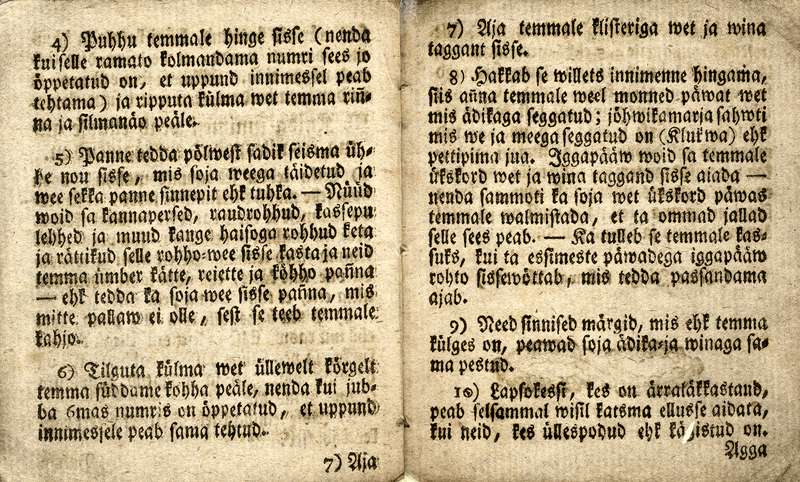 4) Puhhu temmale hinge sisse (nenda
kui selle ramato kolmandama numri sees jo
öppetatud on, et uppund innimessel peab
tehtama) ja ripputa külma wet temma riñ-
na ja silmanäo peäle.
5) Panne tedda pölwest sadik seisma üh-
he nou sisse, mis soja weega täidetud ja
wee sekka panne sinnepit ehk tuhka. — Nüüd
woid sa kannapersed, raudrohhud, kassepu
lehhed ja muud kange haisoga rohhud keta
ja rättikud selle rohho-wee sisse kasta ja neid
temma ümber kätte, reiette ja köhho pañna
— ehk tedda ka soja wee sisse pañna, mis
mitte pallaw ei olle, sest se teeb temmale
kahjo.
6) Tilguta külma wet üllewelt körgelt
temma süddame kohha peäle, nenda kui jub-
ba 6mas numris on öppetatud, et uppund
innimesjele peab sama tehtud.
7) Aja
7) Aja temmale klisteriga wet ja wina
taggant sisse.
8) Hakkab se willets innimenne hingama,
siis añna temmale weel monned päwat wet
mis ädikaga seggatud; jöhwikamarja sahwti
mis we ja meega seggatud on (Klukwa) ehk
pettipima jua. Iggapääw woid sa temmale
ükskord wet ja wina taggand sisse aiada —
nenda sammoti ka soja wet ükskord päwas
temmale walmistada, et ta ommad jallad
selle sees peab. — Ka tulleb se temmale kas-
suks, kui ta essimeste päwadega iggapääw
rohto sissewöttab, mis tedda passandama
ajab.
9) Need sinnised märgid, mis ehk temma
külges on, peawad soja ädika- ja winaga sa-
ma pestud.
10) Lapsokessi, kes on ärratäkkastand,
peab selsammal wisil katsma ellusse aidata,
kui neid, kes üllespodud ehk kägistud on.
Agga